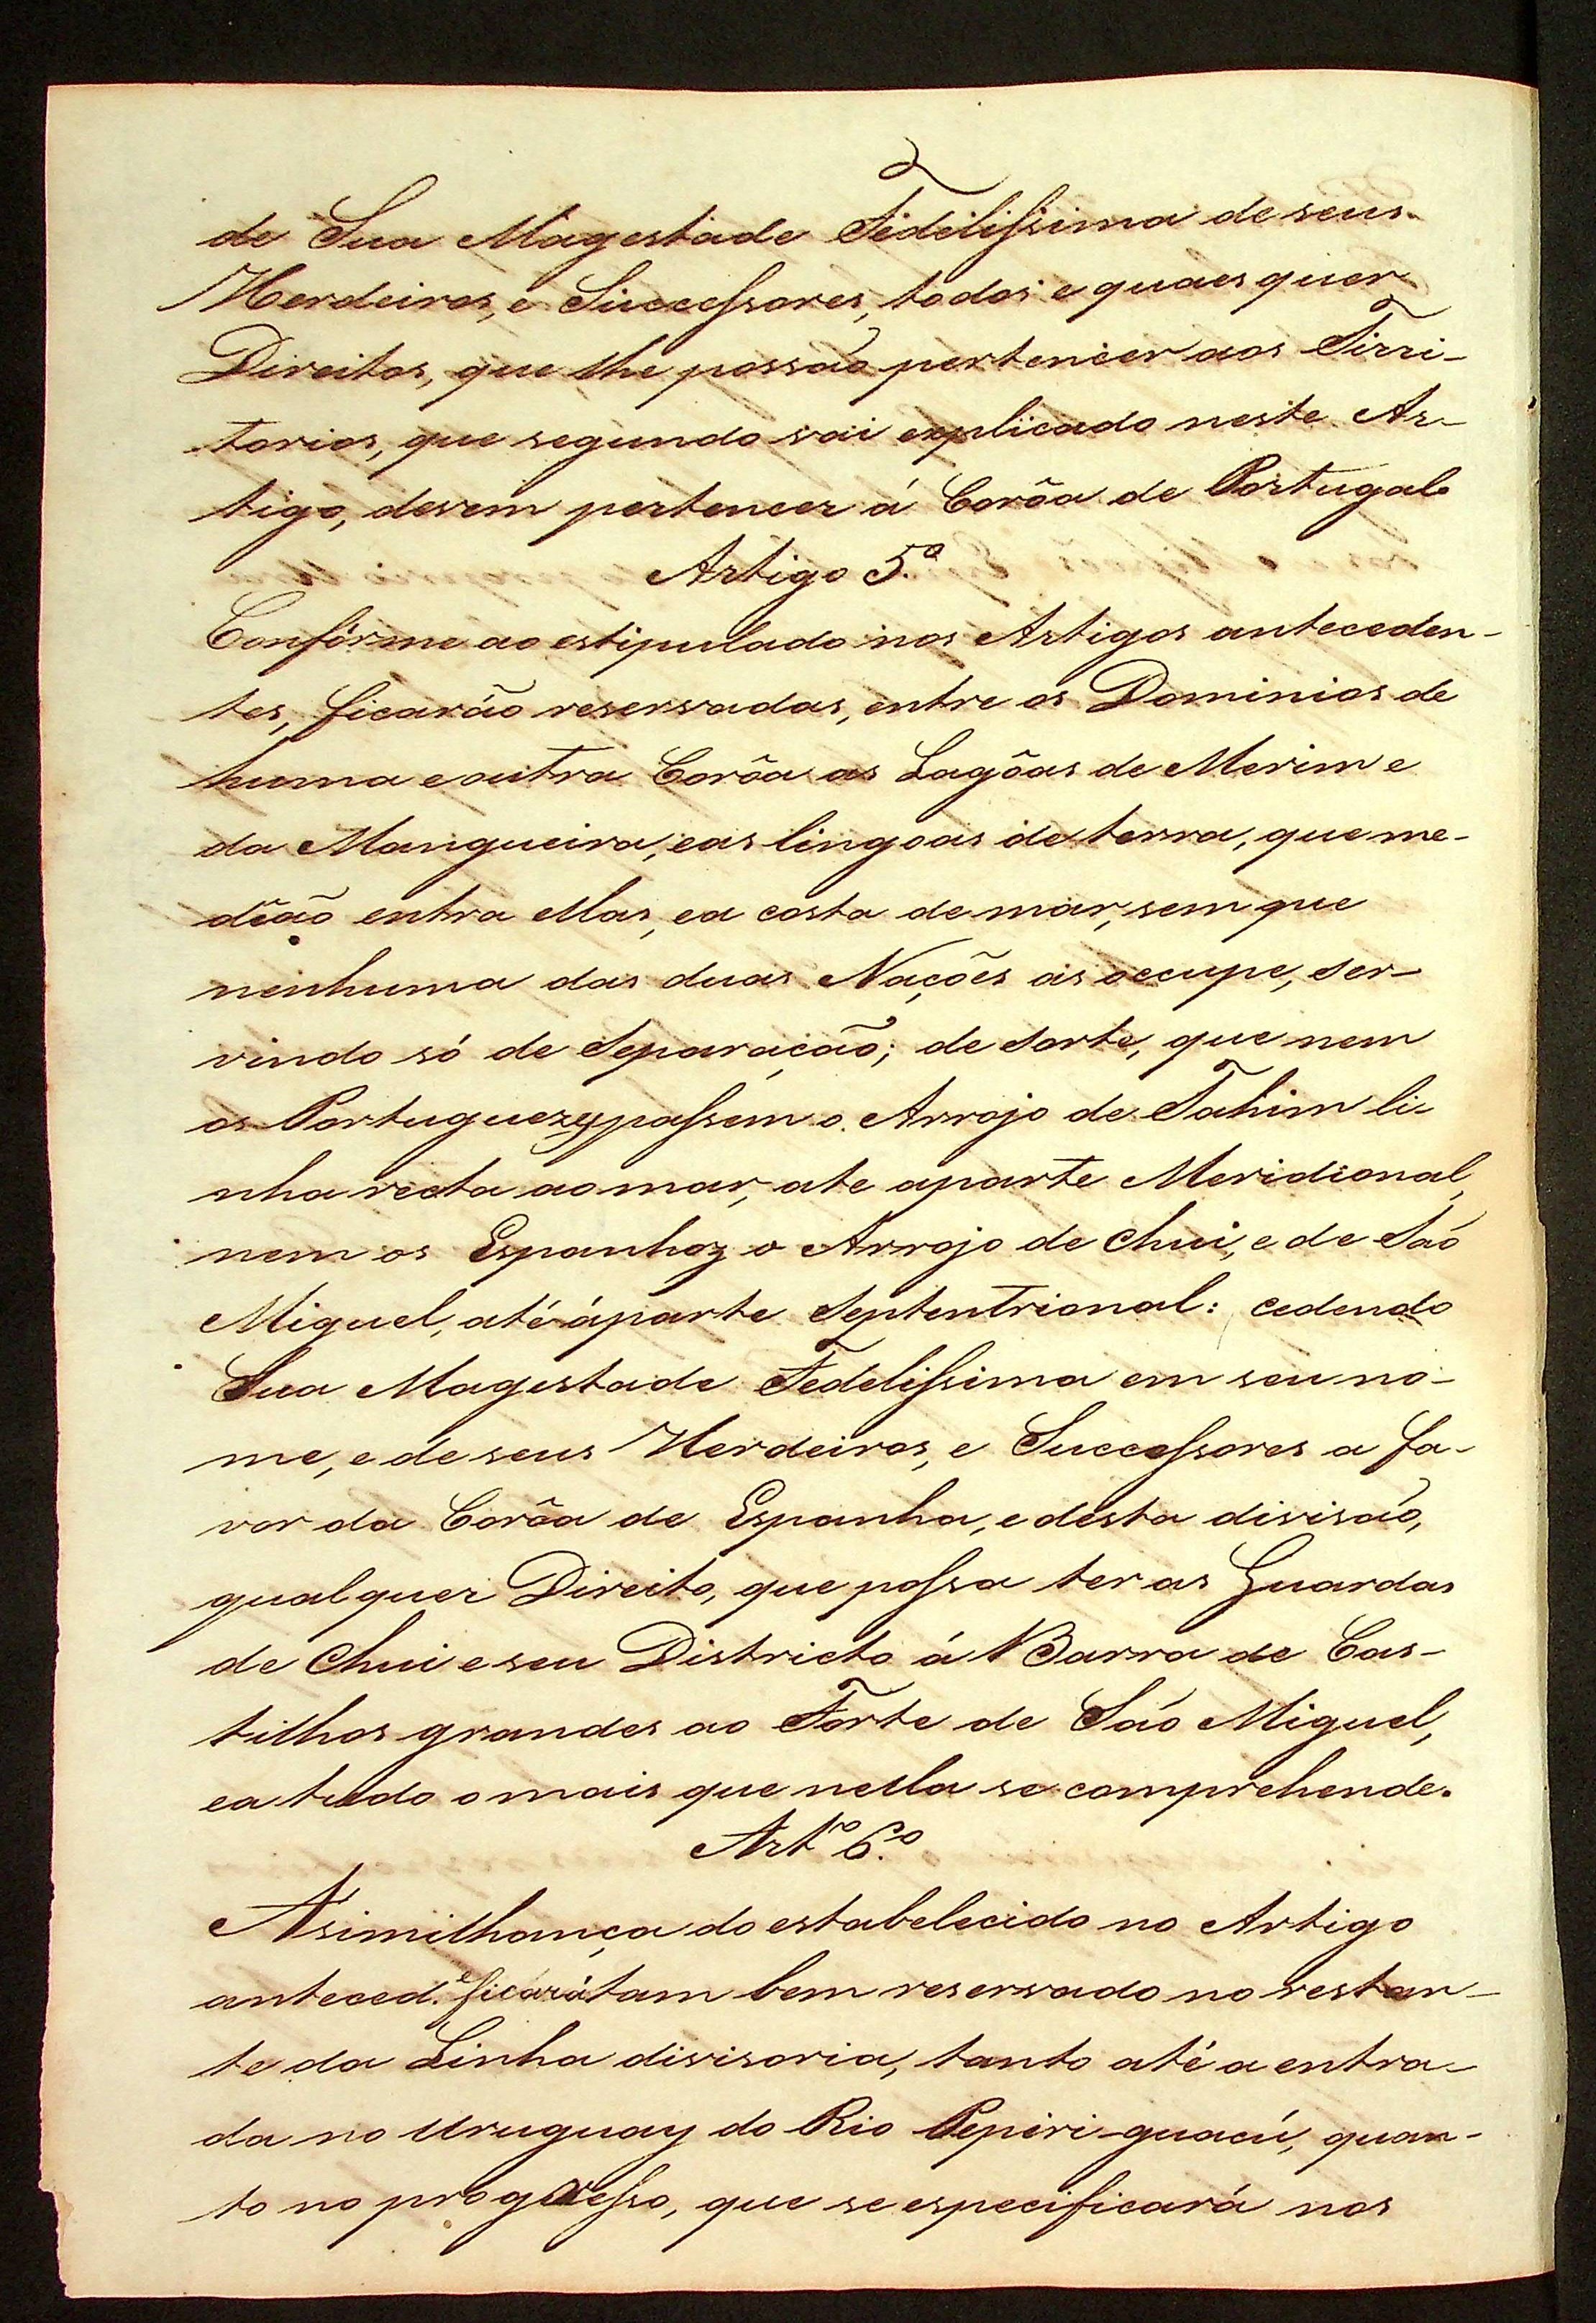 de Sua Magestade Fedelissima de seus
Herdeiros, e Successores, todos e quaes quer
Direitos, que lhe possaõ pertencer aos Tirri-
torios, que segundo vai explicado neste Ar-
tigo, devem pertencer á Corôa de Portugal.
Artigo 5.º
Confórme ao estipulado nos Artigos anteceden-
tes, ficarão reservadas, entre os Dominios de
huma e outra Corôa as Lagôas de Merim e
da Mangueira, e as lingoas de terra, que me-
dêão entra ellas, e a costa de mar, sem que
nenhuma das duas Nações as occupe, ser-
vindo só de Separação; de sorte, que nem
os Portuguezes passem o Arrojo de Tahim li-
nha recta ao mar, ate a parte Meridional,
nem os Espanhoz o Arrojo de Chui, e de São
Miguel, até á parte Septentrional: cedendo
Sua Magestade Fedelissima em seu no-
me, e de seus Herdeiros, e Successores a fa-
vor da Corôa de Espanha, e desta divisaõ,
qual quer Direito, que possa ter as Guardas
de Chui e seu Districto á Barra de Cas-
tilhos grandes ao Forte de São Miguel,
e a tudo o mais que nella se comprehende.
Artº 6.º
A similhança do estabelecido no Artigo
anteced.e ficará tam bem reservado no restan-
te da Linha divisoria, tanto até a entra-
da no Uruguay do Rio Pepiri-guacú, quan-
to no progresso, que se especificará nos